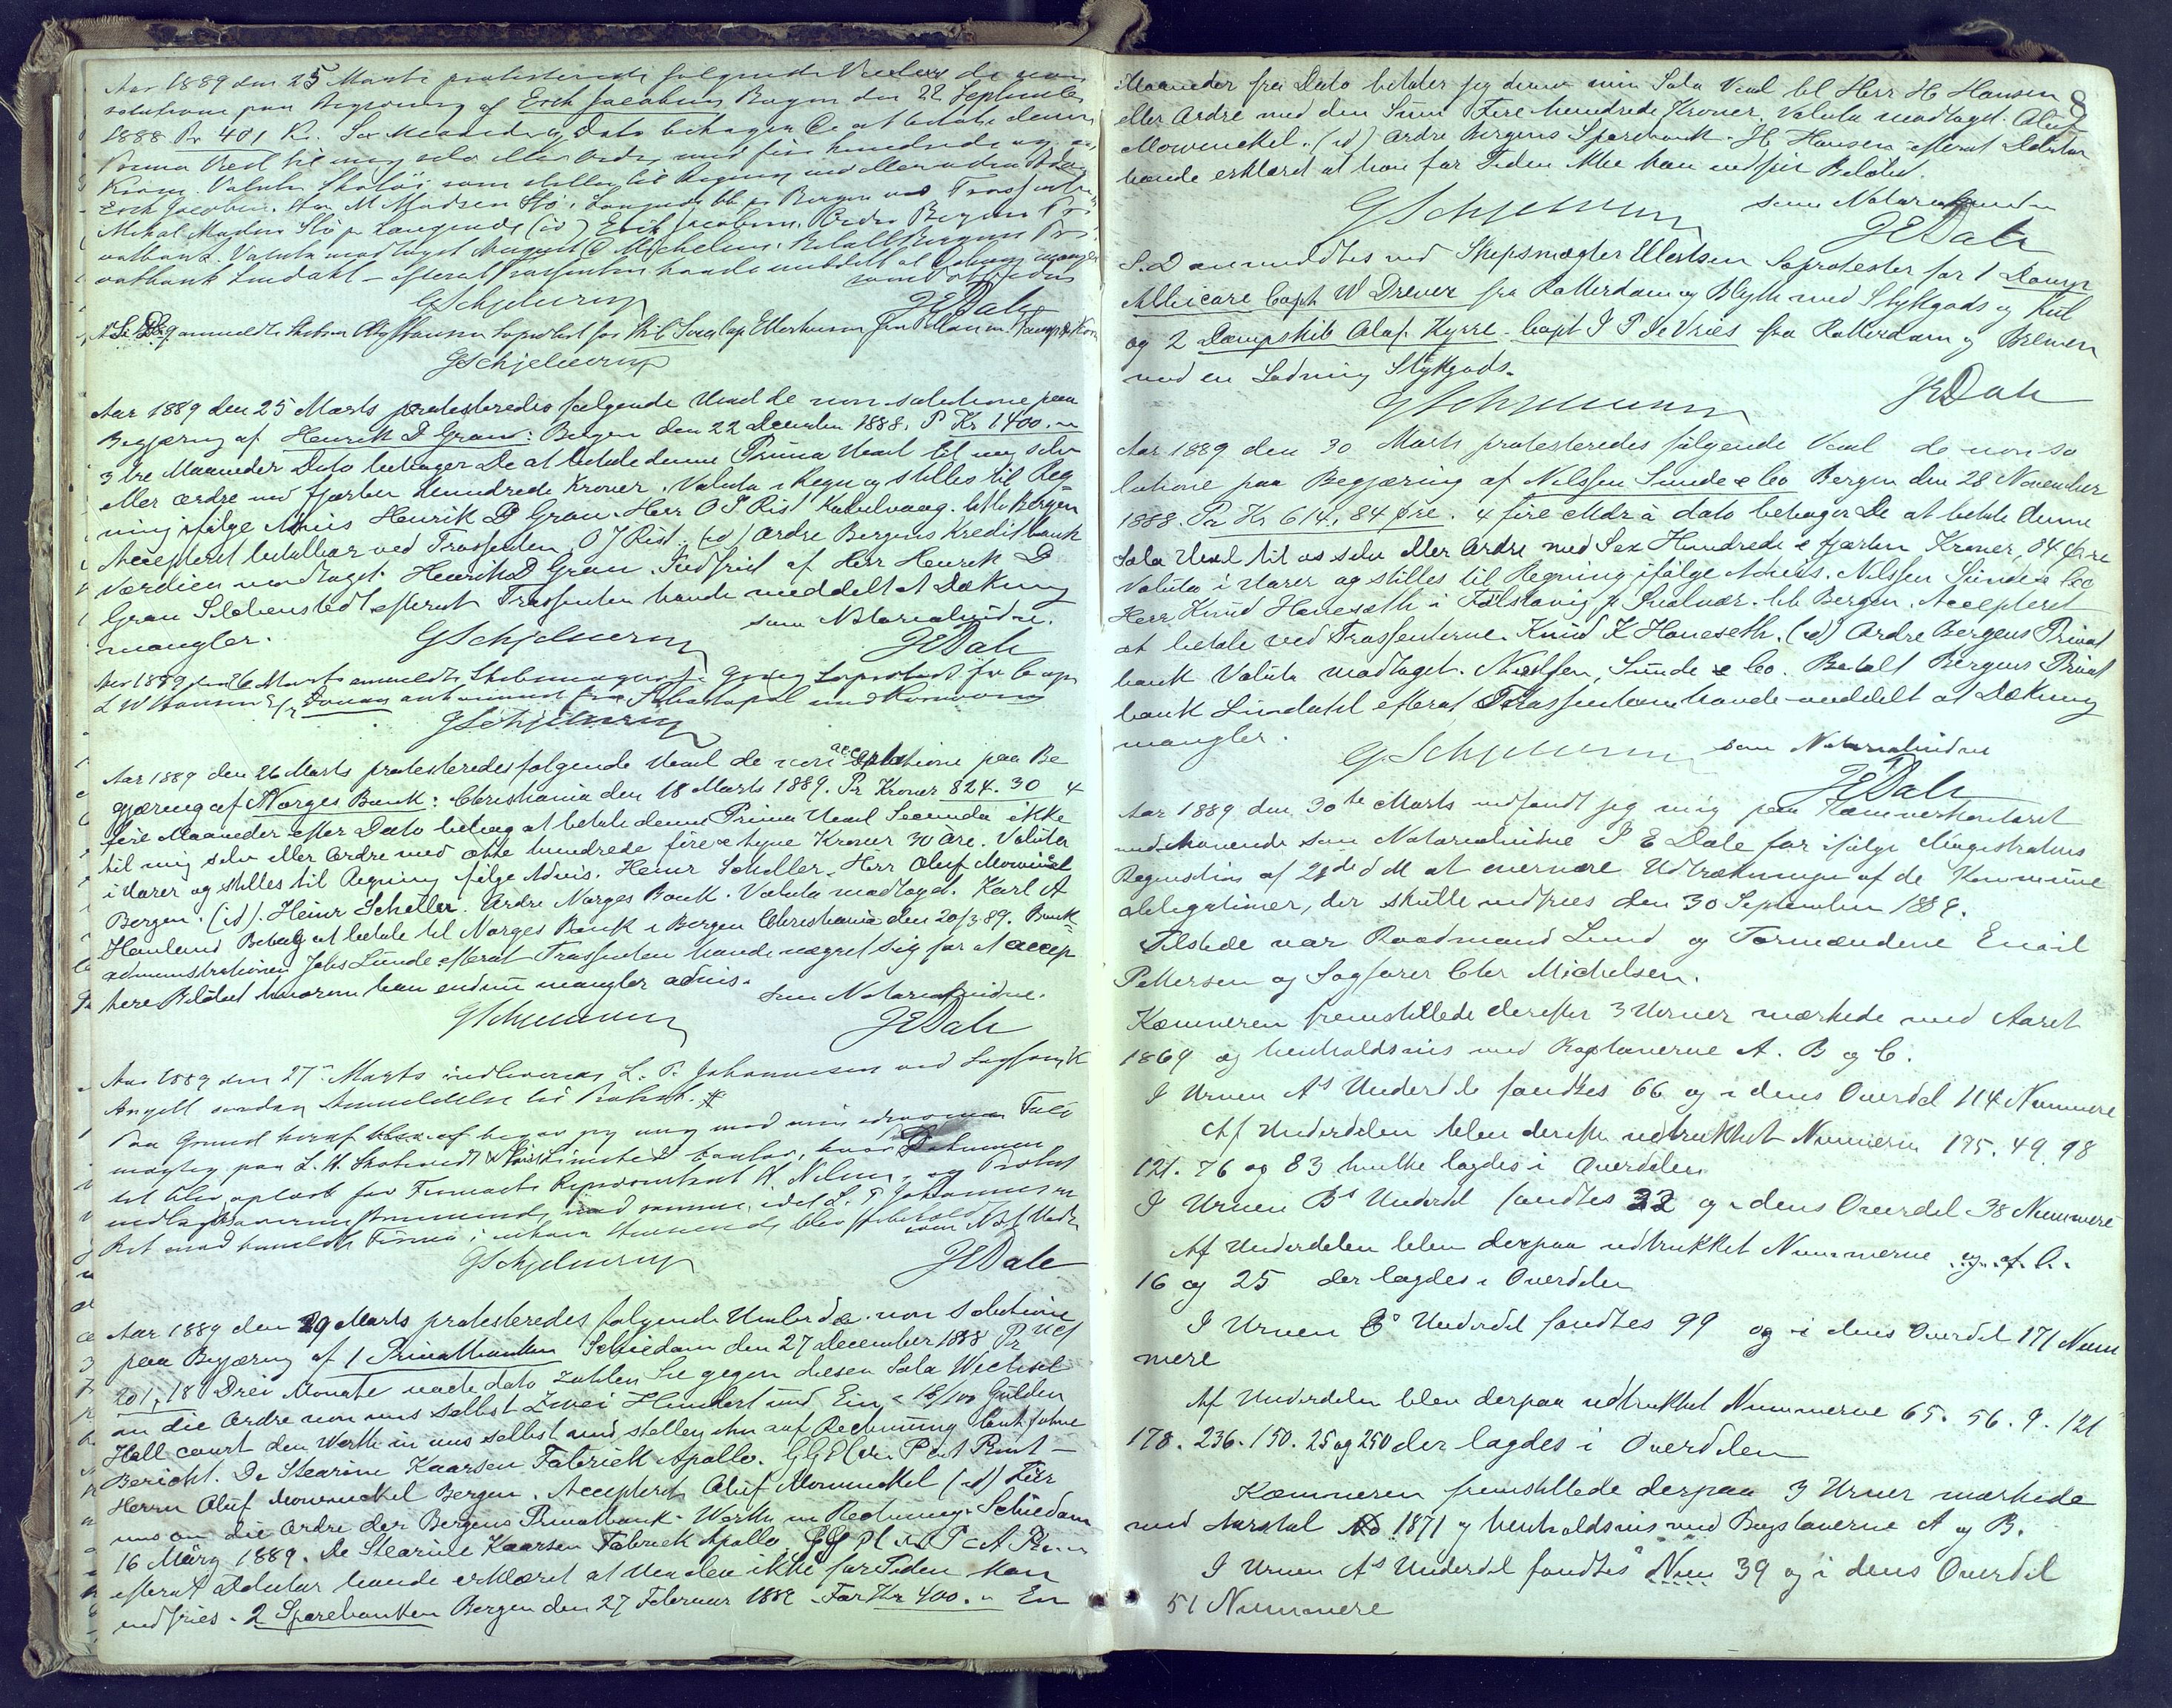 Aar 1889 den 25 Marts protesterede følgende Vexler de non
solutione paa Begjæring af Erik Jacobsen Bergen den 22 September
1888 Pr 401 Kr. Sex Maaneder Dato behager De at betale denne
Prima Vexel til mig selv eller Ordre med fire hundrede og
Kroner. Valuta
Erik Jacobsen. Herr M Madsen Bergen ved Trassenten
Mikal Madsen (id) Erik Jacobsen. Ordre Bergens Pri
vatbank. Valuta modtaget August D Michelsen. Betalt Bergens Pri
vatbank Lindahl - efterat Trassenten havde meddelt at Dækning mangler
GSchjelderup JEDale
anmeldte
GSchjelderup
Aar 1889 den 25 Marts protesteredes følgende Vexel de non solutione paa
Begjæring af Henrik D Gran: Bergen den 22 December 1888. P Kr 1400.
3 tre Maaneder Dato behager De at betale denne Prima Vexel til mig selv
eller ordre med fjorten Hundrede Kroner. Valuta i Regn og stilles til Reg
ning ifølge Advis Henrik D Gran. Herr O J Rist Kabelvaag. btb Bergen
Accepteret betalbar ved Trassenten O J Rist. (id) Ordre Bergens Kreditbank
Værdien modtaget. Henrik D Gran. Indfriet af Herr Henrik D
Gran efterat Trassenten havde meddelt at Dækning
mangler. som Notarialvidne.
GSchjelderup JEDale
Aar 1889 den 26 Marts anmeldte Søprotest for Capt
L W Hansen Jonas ankommet fra Sebastopol med Kornvarer
GSchjelderup
Aar 1889 den 26 Marts protesteredes følgende Vexel de non acceptatione paa Be
gjæring af Norges Bank: Christiania den 18 Marts 1889. Pr Kroner 824.30 4
fire Maaneder efter Dato behag at betale denne Prima Vexel Secunda ikke
til mig selv eller Ordre med otte hundrede fire & tyve Kroner 30 Øre. Valuta
i Varer og stilles til Regning følge Advis. Heinr Scheller. Herr Oluf Mowinckel
Bergen. (id). Heinr Scheller. Ordre Norges Bank. Valuta modtaget. Karl A
Hanland Behag at betale til Norges Bank i Bergen Christiania den 20/3 89. Bank
administrationen Johs Lunde efterat Trassenten havde vægret sig for at accep
tere Beløbet hvorom han endnu mangler advis.
som Notarialvidne.
GSchjelderup JEDale
Aar 1889 den 27 Marts indleverede L. P. Johannesen ved Sagfører K
Angell saadan Anmeldelse til Protest.
Paa Grund heraf begav jeg mig med min edsvorne Fuld
mægtig paa
tet blev oplæst for Firmaets Repræsentant N. Nilsen, og Protest
nedlagt idet L. P. Johannesen
Ret mod Firma i enhver Henseende blev forbeholdt
GSchjelderup JEDale
Aar 1889 den 29 Marts protesteredes følgende Vexler de non solutione
paa Begjæring af 1 Privatbanken Schiedam den 27 December 1888 Pr
201,18 Drei Monate nach dato zahlen Sie gegen diesen Sola Wechsel
an die Ordre von uns selbst Zwei Hundert und Ein & 18/100 Gulden
Holl court den Werth in uns selbst und stellen ihn auf Rechnung laut / ohne
Bericht. De Stearine Kaarsen Fabriek Apollo.
Herrn Oluf Mowinckel Bergen. Accepteret Oluf Mowinckel (id) Für
uns an die Ordre der Bergens Privatbank. Werth in Rechnung. Schiedam
16 März 1889. De Stearine Kaarsen Fabriek Apollo
efterat Debitor havde erklæret at Vexelen ikke for Tiden kan
indfries. 2 Sparebanken Bergen den 27 Februar 1889 For Kr 400. En
8
Maaneder fra Dato betaler jeg denne min Sola Vexel til Herr H Hansen
eller Ordre med den Sum Fire hundrede Kroner. Valuta modtaget. Oluf
Mowinckel. (id) Ordre Bergens Sparebank. H Hansen efterat Debitor
havde erklæret at han for Tiden ikke kan indfri Beløbet.
som Notarialvidne
GSchjelderup JEDale
S.D anmeldtes ved Skipsmægler Ellertsen Søprotester for 1 Damp
Capt W Drever fra Rotterdam og Blyth med Stykgods og Kul
og 2 Dampskib Olaf Kyrre Capt J P de Vries fra Rotterdam og Bremen
med en Ladning Stykgods.
GSchjelderup JEDale
Aar 1889 den 30 Marts protesteredes følgende Vexel de non so
lutione paa Begjæring af Nilssen Sunde & Co Bergen den 28 November
1888. Pr Kr 614,84 Øre. 4 fire Mdr à dato behager De at betale denne
Sola Vexel til os selv eller Ordre med Sex Hundrede & fjorten Kroner, 84 Øre
Valuta i Varer og stilles til Regning ifølge Advis. Nilssen Sunde & Co
Herr Knud Haneseth i pr Svolvær. btb Bergen. Accepteret
at betale ved Trassenterne. Knud K Haneseth. (id) Ordre Bergens Privat
bank Valuta modtaget. Nielsen, Sunde & Co. Betalt Bergens Privat
bank Lindahl efterat Trassenterne havde meddelt at Dækning
mangler.
G. Schjelderup som Notarialvidne
JEDale
Aar 1889 den 30te Marts indfandt jeg mig paa Kæmnerkontoret
medhavende som Notarialvidne J E Dale for ifølge Magistratens
Requisition af 28de d M at overvære Udtrækningen af de Kommune
obligationer, der skulle indfries den 30 September 1889.
Tilstede var Raadmand Lund og Formændene Emil
Pettersen og Sagfører Chr Michelsen.
Kæmneren fremstillede derefter 3 Urner mærkede med Aaret
1869 og henholdsvis med Bogstaverne A. B og C.
I Urnen A's Underdel fandtes 66 og i dens Overdel 114 Nummere
Af Underdelen blev derefter udtrukket Numerne 175. 49. 98
121. 76 og 83 hvilke lagdes i Overdelen
I Urnen B's Underdel fandtes 32 og i dens Overdel 38 Nummere
Af Underdelen blev derpaa udtrukket Nummerne og af C.
16 og 25 der lagdes i Overdelen
I Urnen C's Underdel fandtes 99 og i dens Overdel 171 Num
mere
Af Underdelen blev derpaa udtrukket Nummerne 65. 56. 9. 121
178. 236. 150. 25 og 250 der lagdes i Overdelen
Kæmneren fremstillede derpaa 3 Urner mærkede
med Aarstal 1871 og henholdsvis med Bogstaverne A og B.
I Urnen A's Underdel fandtes Num 39 og i dens Overdel
51 Nummere